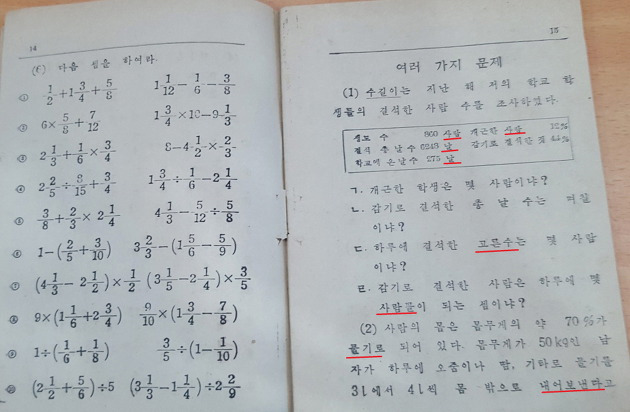 14
(6) 다음 셈을 하여라.
① 1/2+1 3/4+5/8 1 1/12-1/6-3/8
② 6×5/8+7/12 1 3/4×10-9 1/3
③ 2 1/3+1/6×3/4 8-4 1/2×2/3
④ 2 2/5÷8/15+3/4 1 3/4÷1/6-2 1/4
⑤ 3/8+2/3×2 1/4 4 1/3-5/12÷5/8
⑥ 1-(2/5+3/10) 3 2/3-(1 5/6-5/9)
⑦ (4 1/3-2 1/2)×1/2 (3 1/5-2 1/4)×3/5
⑧ 9×(1 1/6+2 3/4) 9/10×(1 3/4-7/8)
⑨ 1÷(1/6+1/8) 3/5÷(1-1/10)
⑩ (2 1/2+5/6)÷5 (3 1/3-1 1/4)÷2 2/9
15
여러 가지 문제
(1) 수길이는 지난 해 저의 학교 학
생들의 결석한 사람 수를 조사하였다.
생도 수 860 사람 개근한 사람 12%
결석 총 날수 6248 날 감기로 결석한 것
학교에 온 날수 275 날
ㄱ. 개근한 학생은 몇 사람이냐?
ㄴ. 감기로 결석한 총 날 수는 며칠
이냐?
ㄷ. 하루에 결석한 고른수는 몇 사람
이냐?
ㄹ. 감기로 결석한 사람은 하루에 몇
사람꼴이 되는 셈이냐?
(2) 사람의 몸은 몸무게의 약 70%가
물기로 되어 있다. 몸무게가 50kg인 남
자가 하루에 오줌이나 땀, 기타로 물기를
3l에서 4l씩 몸 밖으로 내어보낸다고